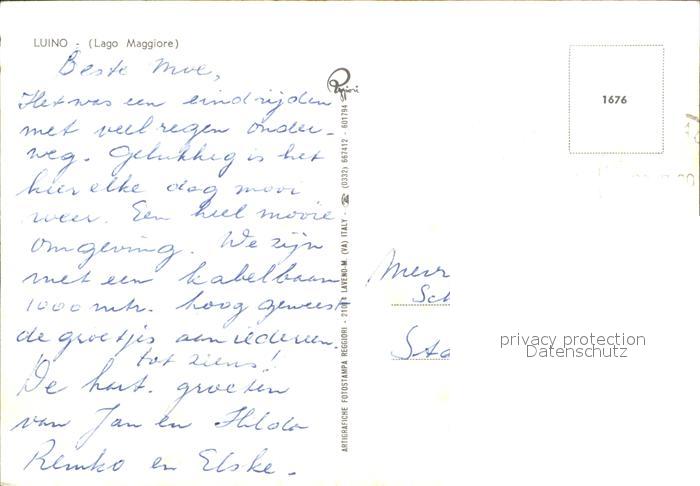 LUINO - (Lago Maggiore)
Beste Moe,
Het was een eind rijden
met veel regen onder-
weg. Gelukkig is het
hier elke dag mooi
weer. Een heel mooie
omgeving. We zijn
met een kabelbaan
1000 mtr. hoog geweest
de groetjes aan iedereen.
tot ziens!
De hart. groeten
van Jan en Hilda
Remko en Elske.
ARTIGRAFICHE FOTOSTAMPA REGGIORI - 21014 LAVENO-M. (VA) ITALY - ☎ (0332) 667412 - 601794
Reggiori
1676
Mevr
Sch
Sta
privacy protection
Datenschutz